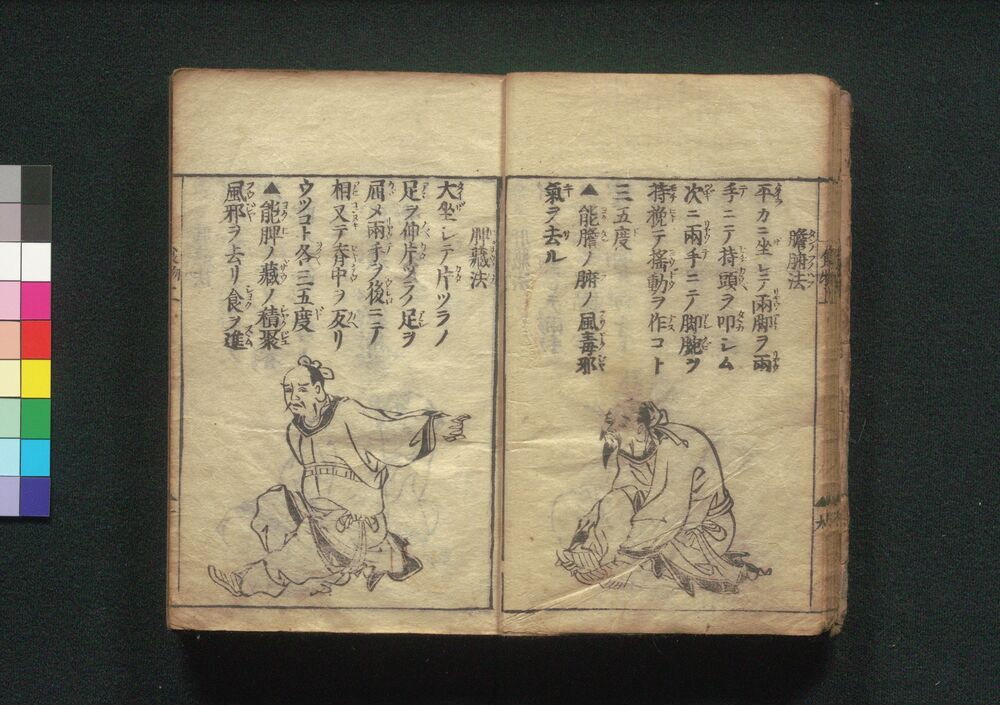 膽腑法
平カニ坐シテ兩脚ヲ兩
手ニテ持頭ヲ叩シム
次ニ兩手ニテ脚腕ヲ
持挽テ揺動ヲ作コト
三五度
▲能膽ノ腑ノ風毒邪
氣ヲ去ル
脾藏法
大坐シテ片ツラノ
足ヲ伸片ツラノ足ヲ
屈メ兩手ヲ後ニテ
相叉テ背中ヲ反リ
ウツコト各三五度
▲能脾ノ藏ノ積聚
風邪ヲ去リ食ヲ進